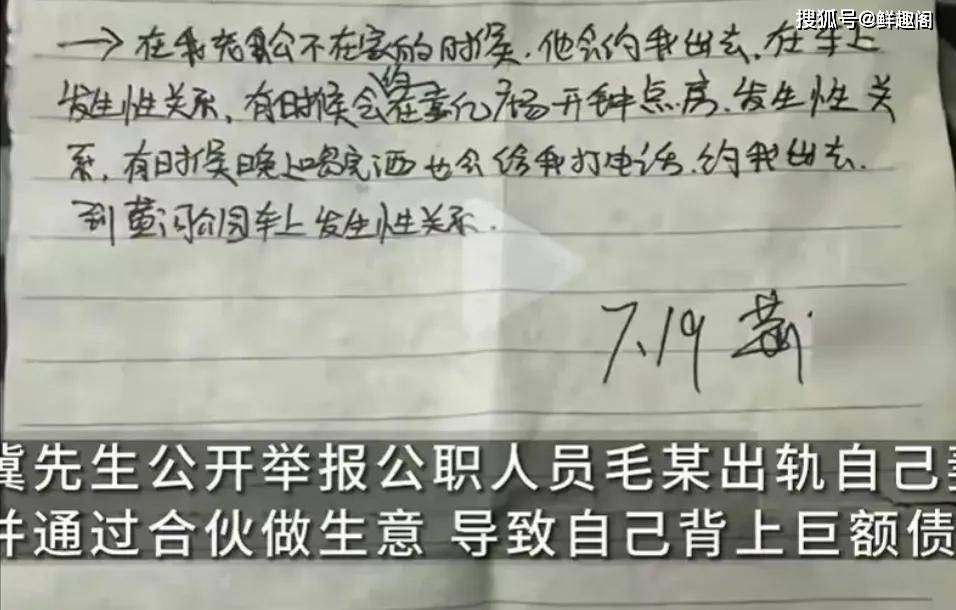 搜狐号@鲜趣阁
→在我老公不在家的时候.他会约我出去.在车上
发生性关系,有时候会约在亿广场开钟点房.发生性关
系,有时候晚上喝完酒也会给我打电话.约我出去.
到黄河公园车上发生性关系.
7.19
冀先生公开举报公职人员毛某出轨自己妻
并通过合伙做生意 导致自己背上巨额债